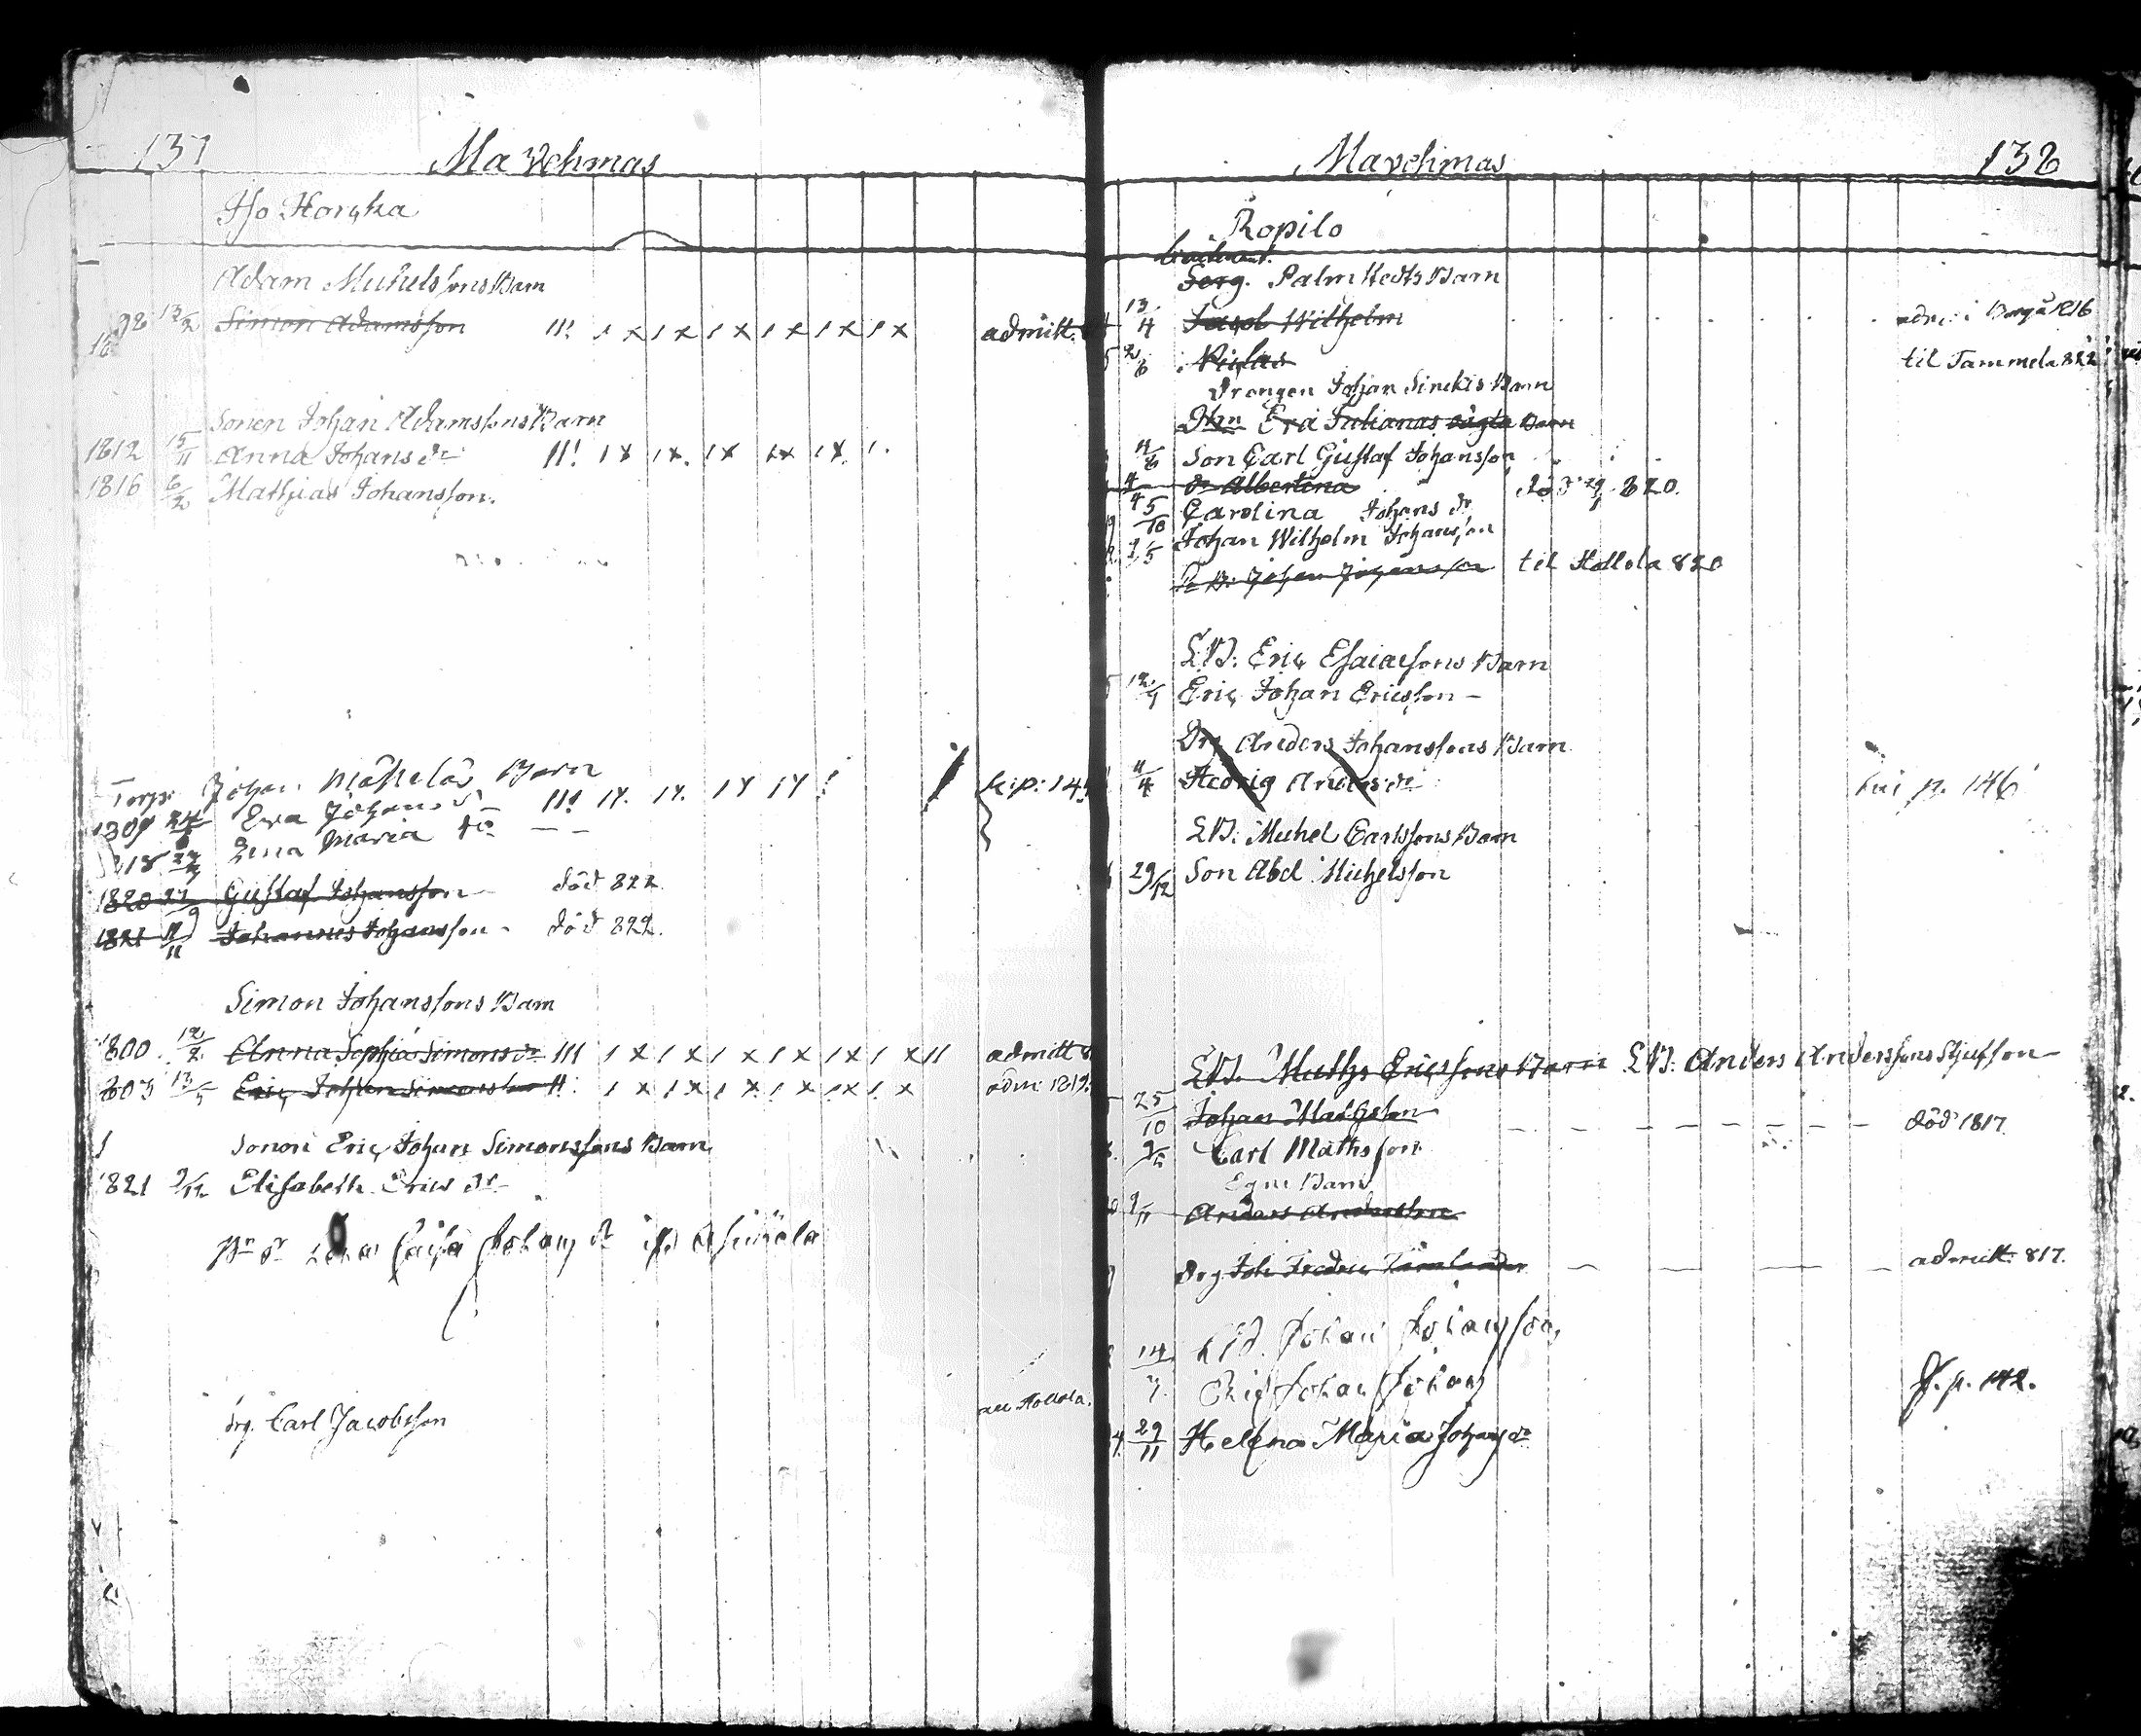 137 Mavehmas
Iso Horcka
Adam Michelssons Barn
98 13/2 Simon Adamsson III! 1 x 1 x 1 x 1 x 1 x 1 x admitt.
Sonen Johan Adamssons Barn
1812 15/11 Anna Johans dr III! 1 x 1 x. 1 x 1 x 1 x. 1.
1816 6/2 Mathias Johansson.
Torp. Johan Barn
1809 24 Eva Johans dr III! k: p: 14
818 Lena Maria do — —
1820 27/9 Gustaf Johansson — död 822
1821 11/11 Johannes Johansson - död 822.
Simon Johanssons Barn
1800 12/2 Anna Sophia Simons dr III 1 x 1 x 1 x 1 x 1 x 1 x II admitt
803 13/5 Eric Johan Simonsson II 1 x 1 x 1 x 1 x 1 x 1 x adm: 1819.
Sonen Eric Johan Simonssons Barn
821 9/12 Elisabeth Erics dr
Caisa Johans dr
drg. Carl Jacobsson Hollola.
Mavehmas 138
Ropilo
Lieutenant
Serg. Palmstedts Barn
13/4 Jacob Wilhelm adm. i Borgå 1816
2/6 Niclas til Tammela 822
Drengen Johan Sireckis Barn
Eva Julianas oägta Barn
11/6 Son Carl Gustaf Johansson
4/4 dr Albertina död 820.
5/10 Carolina Johans dr
9/5 Johan Wilhelm Johansson
Johan Johansson til Hollola 820
L.B. Eric Esaiassons Barn
12/9 Eric Johan Ericsson —
Drg Anders Johanssons Barn
11/4 Hedvig Anders dr p. 146
L.B: Michel Carlssons Barn
29/12 Son Abel Michelsson
L.B. Maths Ericssons Barn L.B. Anders Anderssons Stjufson
25/10 Johan Mathsson — — — — — — — — död 1817.
9/5 Carl Mathsson
Egne Barn
9/11 Anders Andersson
Drg Joh Fredric — — — — — admitt. 817.
Johan Johansson,
14/7. Eric Johan Johans
29/11 Helena Maria Johans dr f. p. 142.